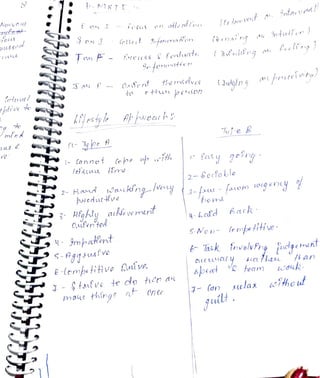 E or I - focus on attention (Extrovert or Introvert)
S or I - collect information (Sensing or Intuition)
T or F - Process & Evaluate Information (Thinking or Feeling)
J or P - Orient themselves to other person (Judging or perceiving)
Lifestyle Approachs
Type A
1- Cannot cope up with leisure time
2- Hard working / very productive
3- Highly achievement oriented
4- Impatient
5- Aggressive
6- Competitive Drive
7- Strive to do two or more things at once
Type B
1- Easy going.
2- Sociable
3- free from urgency of time
4- Laid Back.
5- Non-Competitive.
6- Task involving judgement accuracy rather than speed & team work
7- Can relax without guilt.